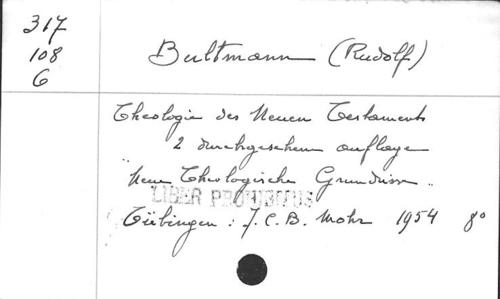 317
108
6
Bultmann (Rudolf)
Theologie des Neuen Testaments
2 durchgesehene auflage
"Neue Theologische Grundrisse"
LIBER PROHIBITUS
Tübingen : J. C. B. Mohr 1954 8°